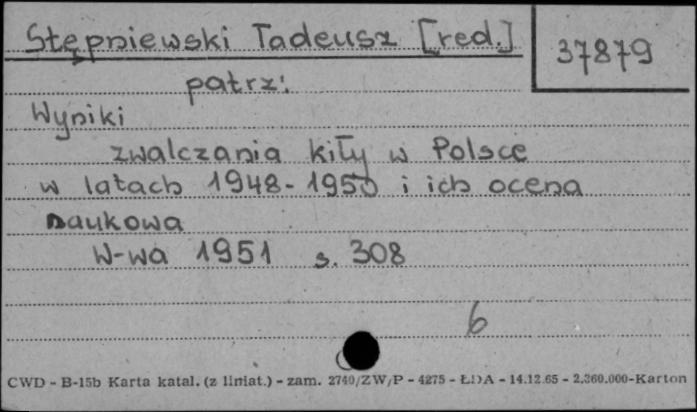 Stępniewski Tadeusz [red.]
37879
patrz:
Wyniki
zwalczania kiły w Polsce
w latach 1948-1950 i ich ocena
naukowa
W-wa 1951 s. 308
6
CWD - B-15b Karta katal. (z liniat.) - zam. 2740/ZW/P - 4275 - ŁDA - 14.12.65 - 2.360.000-Karton